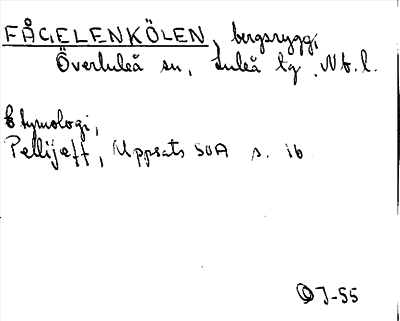 FÅGELENKÖLEN, bergsrygg;
Överluleå sn, Luleå tg, Nb. l.
Etymologi;
Pellijeff, Uppsats SOA s. 16
OJ-55